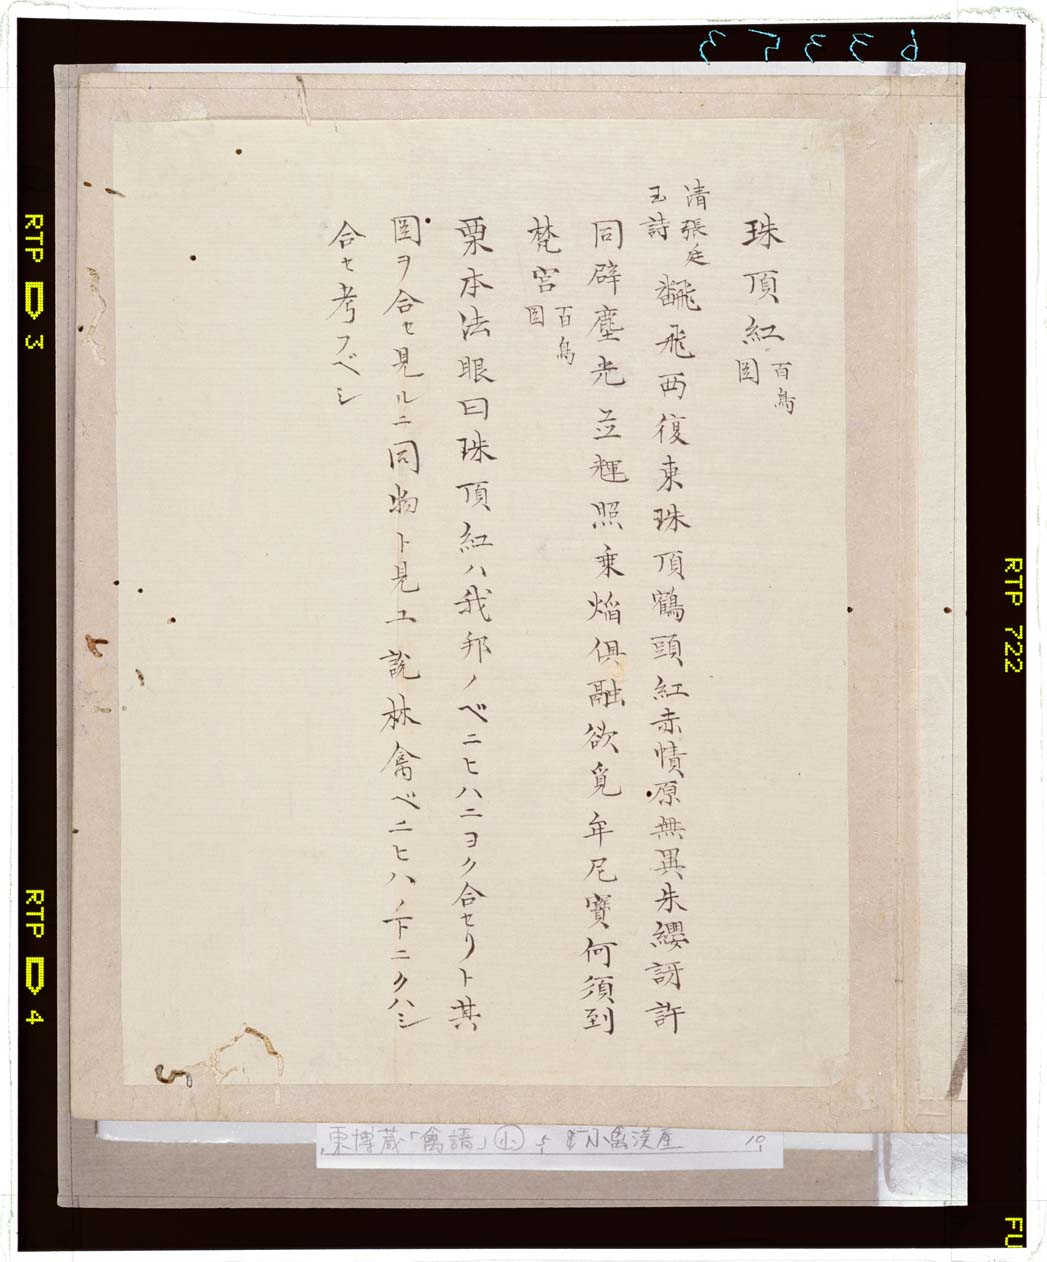 63353
珠頂紅 百鳥図
清張廷玉詩 飜飛西復東珠頂鶴頭紅赤幘原無異朱纓訝許
同辟塵光並輝照乗焔倶融欲覓牟尼寶何須到
梵宮 百鳥図
栗本法眼曰珠頂紅ハ我邦ノベニヒハニヨク合セリト其
図ヲ合セ見ルニ同物ト見ユ説林禽ベニヒハノ下ニクハシ
合セ考フベシ
東博蔵「禽譜」小 5 小禽漢産 10
RTP 3
RTP 4
RTP 722
FU